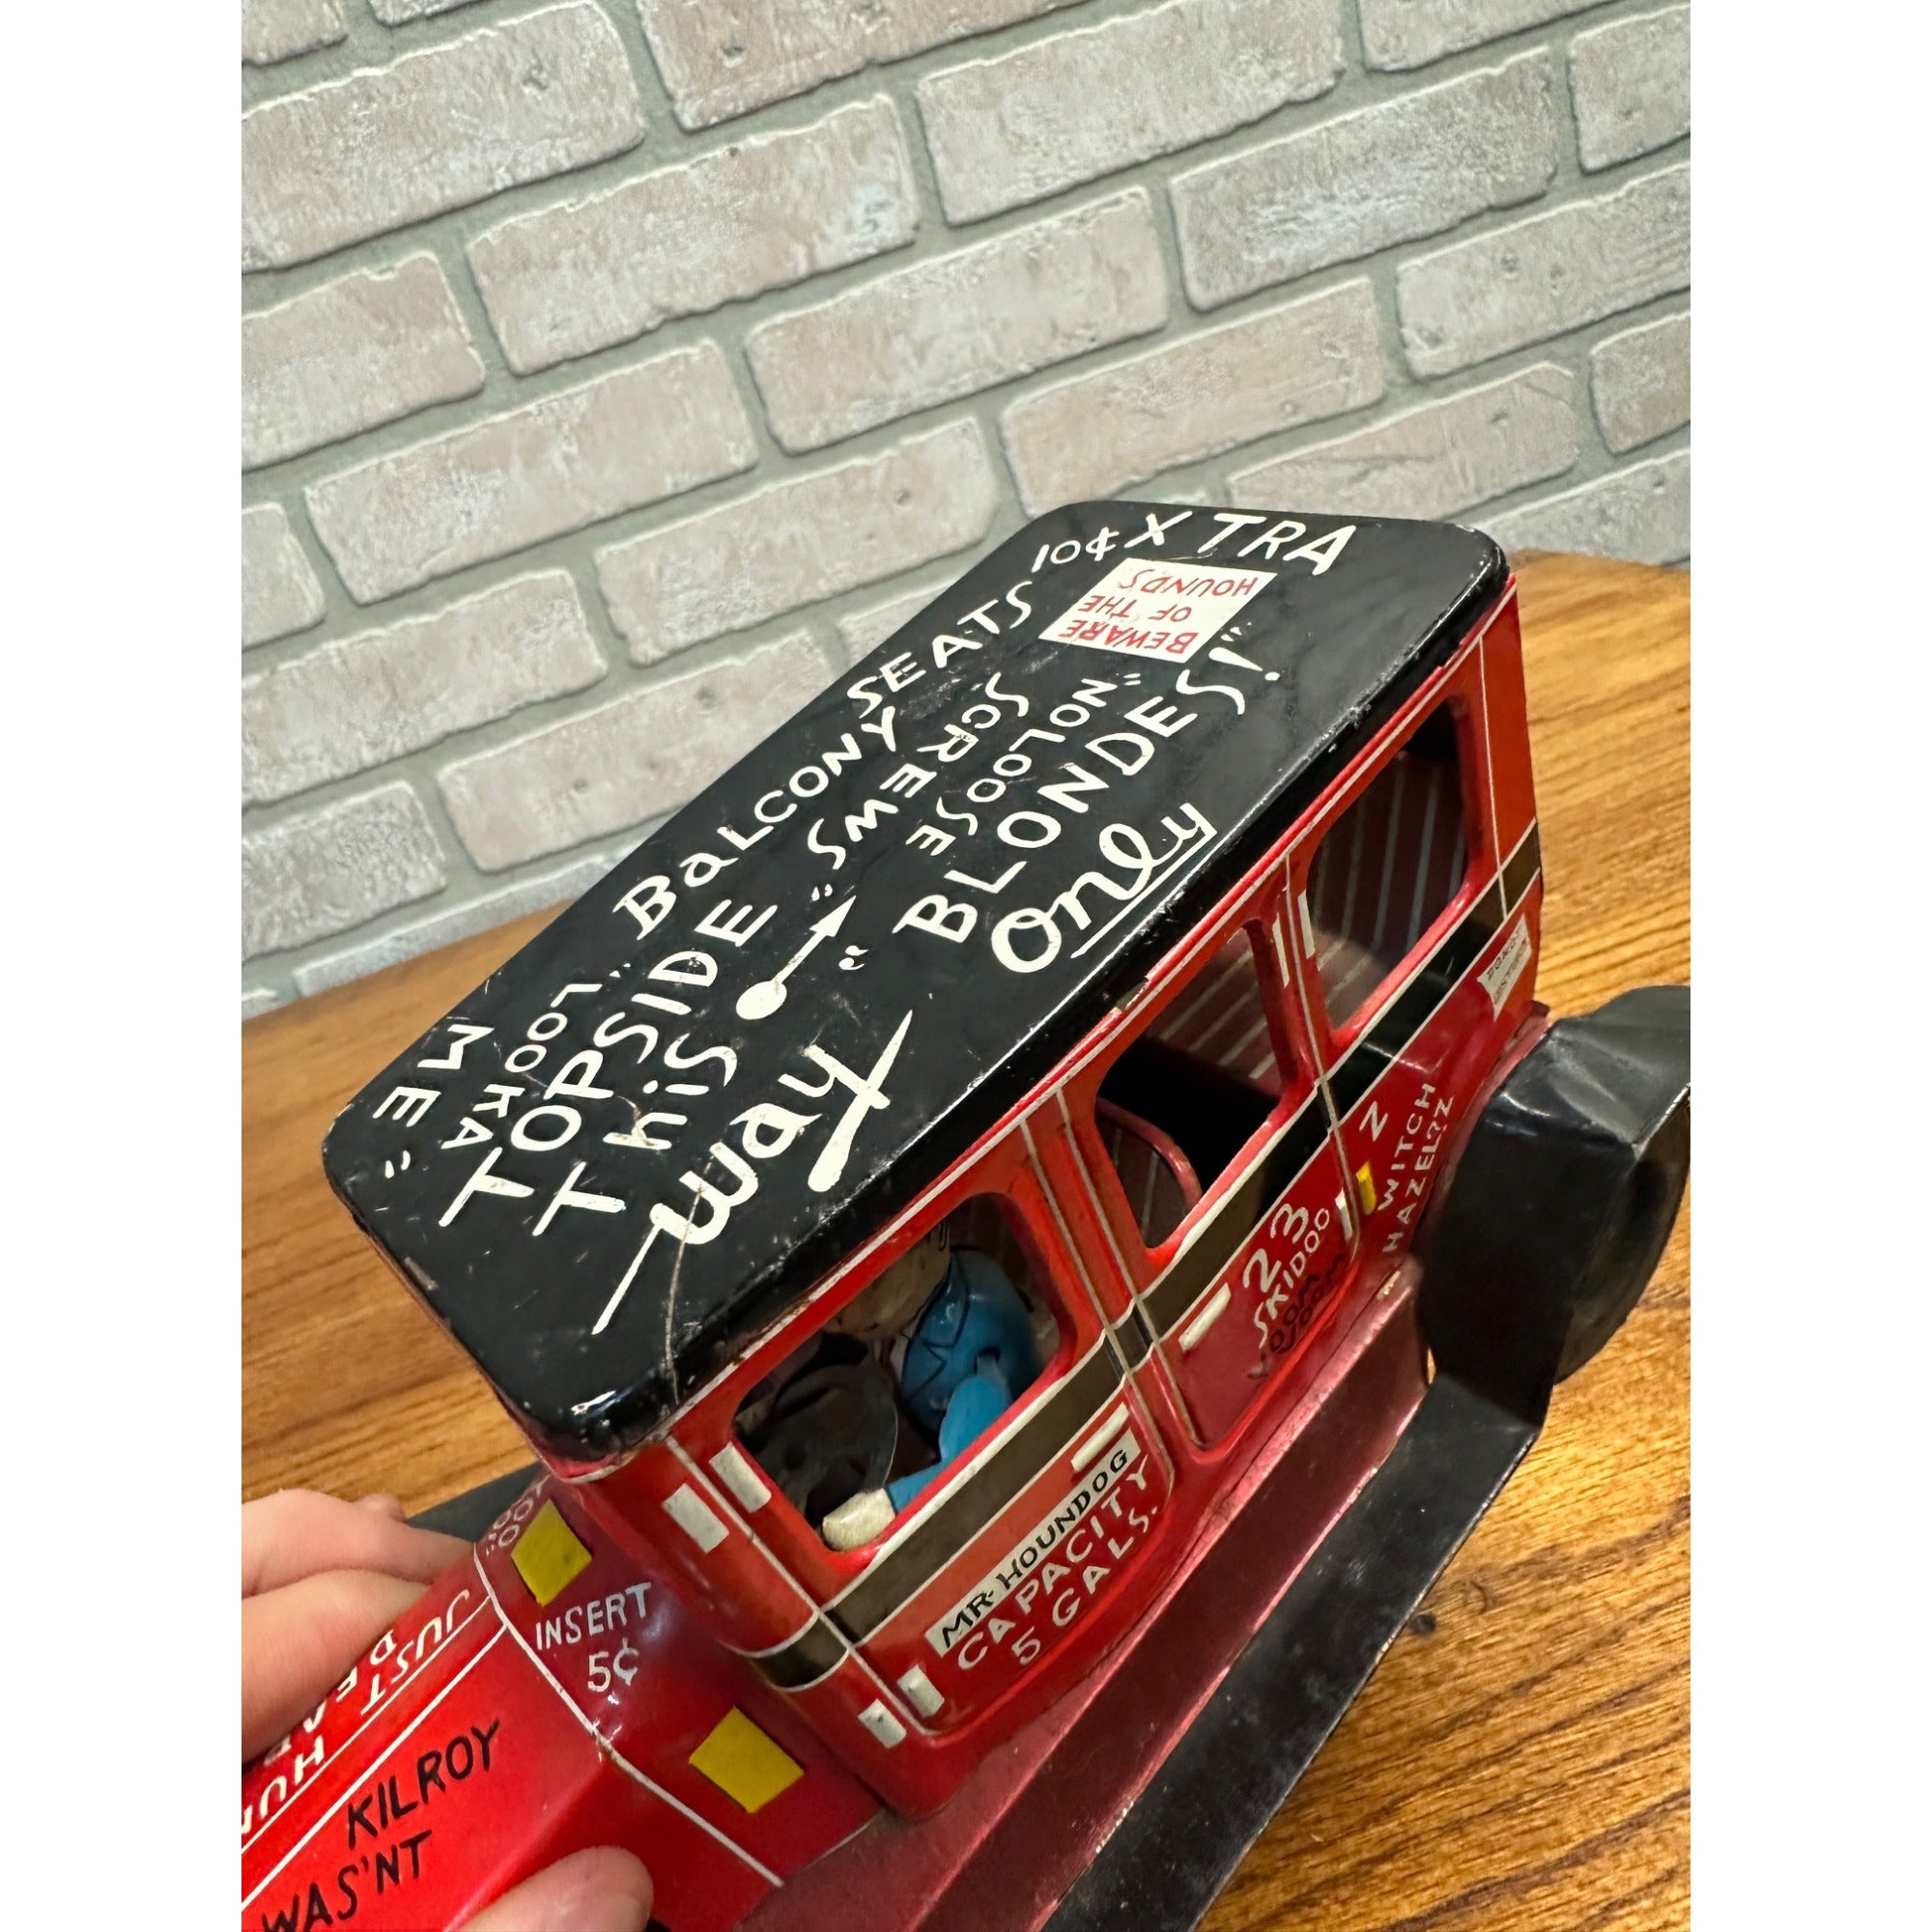 10¢ X TRA
BEWARE
OF THE
HOUNDS
BaLCONY SEATS
"NO LOOSE
SCREWS"
"BLONDES!"
Only
"LOOKA
ME"
TOPSIDE
THiS
way
INSERT
5¢
JUST
KILROY
WAS'NT
MR. HOUNDOG
CAPACITY
5 GALS.
23
SKIDOO
N
WITCH